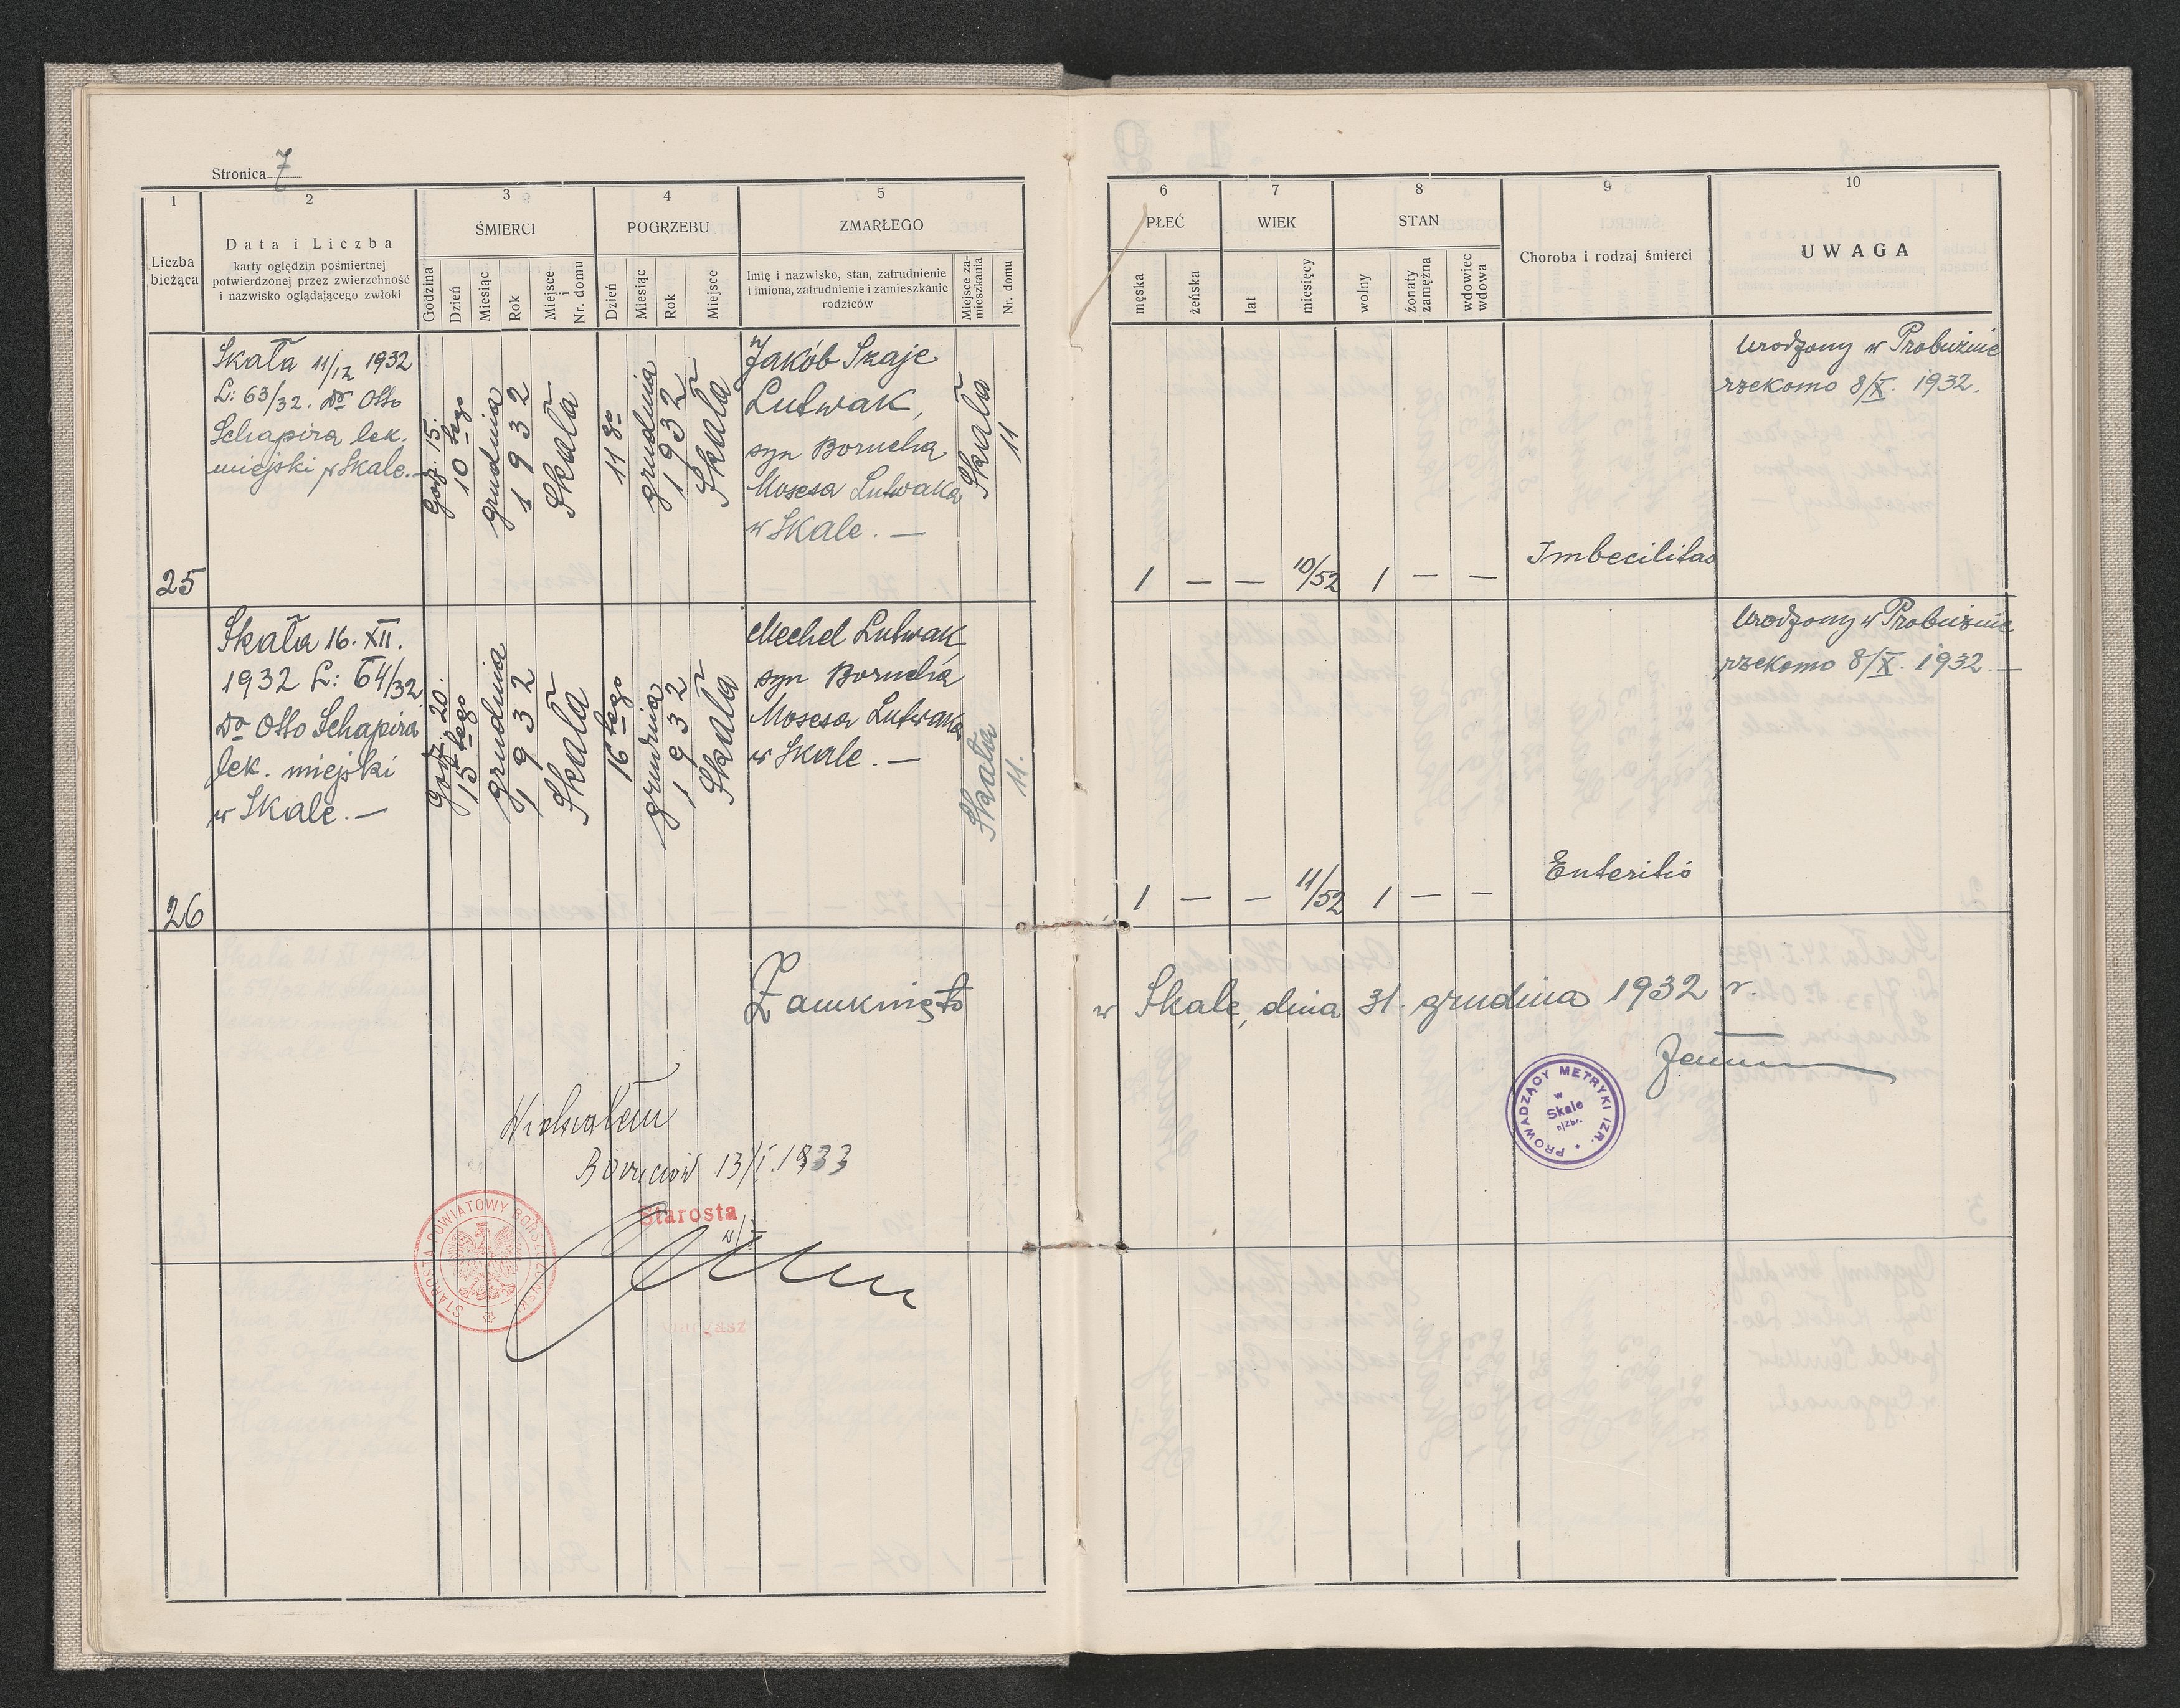 Stronica 7
1
2
3
4
5
Liczba
bieżąca
Data i Liczba
karty oględzin pośmiertnej
potwierdzonej przez zwierzchność
i nazwisko oglądającego zwłoki
ŚMIERCI
Godzina
Dzień
Miesiąc
Rok
Miejsce
i
Nr. domu
POGRZEBU
Dzień
Miesiąc
Rok
Miejsce
ZMARŁEGO
Imię i nazwisko, stan, zatrudnienie
i imiona, zatrudnienie i zamieszkanie
rodziców
Miejsce za-
mieszkania
Nr. domu
6
7
8
9
10
PŁEĆ
męska
żeńska
WIEK
lat
miesięcy
STAN
wolny
żonaty
zamężna
wdowiec
wdowa
Choroba i rodzaj śmierci
UWAGA
25
Skała 11/12 1932
L: 63/32. Dr Otto
Schapira lek.
miejski w Skale.—
godz. 15.
10 tego
grudnia
1932
Skała
11 go
grudnia
1932
Skała
Jakób Szaje
Lutwak,
syn Borucha
Mosesa Lutwaka
w Skale. —
Skała
11
1 — — 10/52 1 — —
Imbecilitas
Urodzony w Probużnie
rzekomo 8/X. 1932.
26
Skała 16. XII.
1932 L: 64/32
Dr Otto Schapira
lek. miejski
w Skale.—
godz. 20.
15 tego
grudnia
1932
Skała
16 tego
grudnia
1932
Skała
Mechel Lutwak
syn Borucha
Mosesa Lutwaka
w Skale. —
Skała
11.
1 — — 11/52 1 — —
Enteritis
Urodzony w Probużnie
rzekomo 8/X. 1932.—
Zamknięto w Skale, dnia 31. grudnia 1932 r.
PROWADZĄCY METRYKI IZR.
w
Skale
n/Zbr.
Widziałem
Borszczów 13/I. 1933
Starosta
w/z
STAROSTA POWIATOWY BORSZCZOWSKI